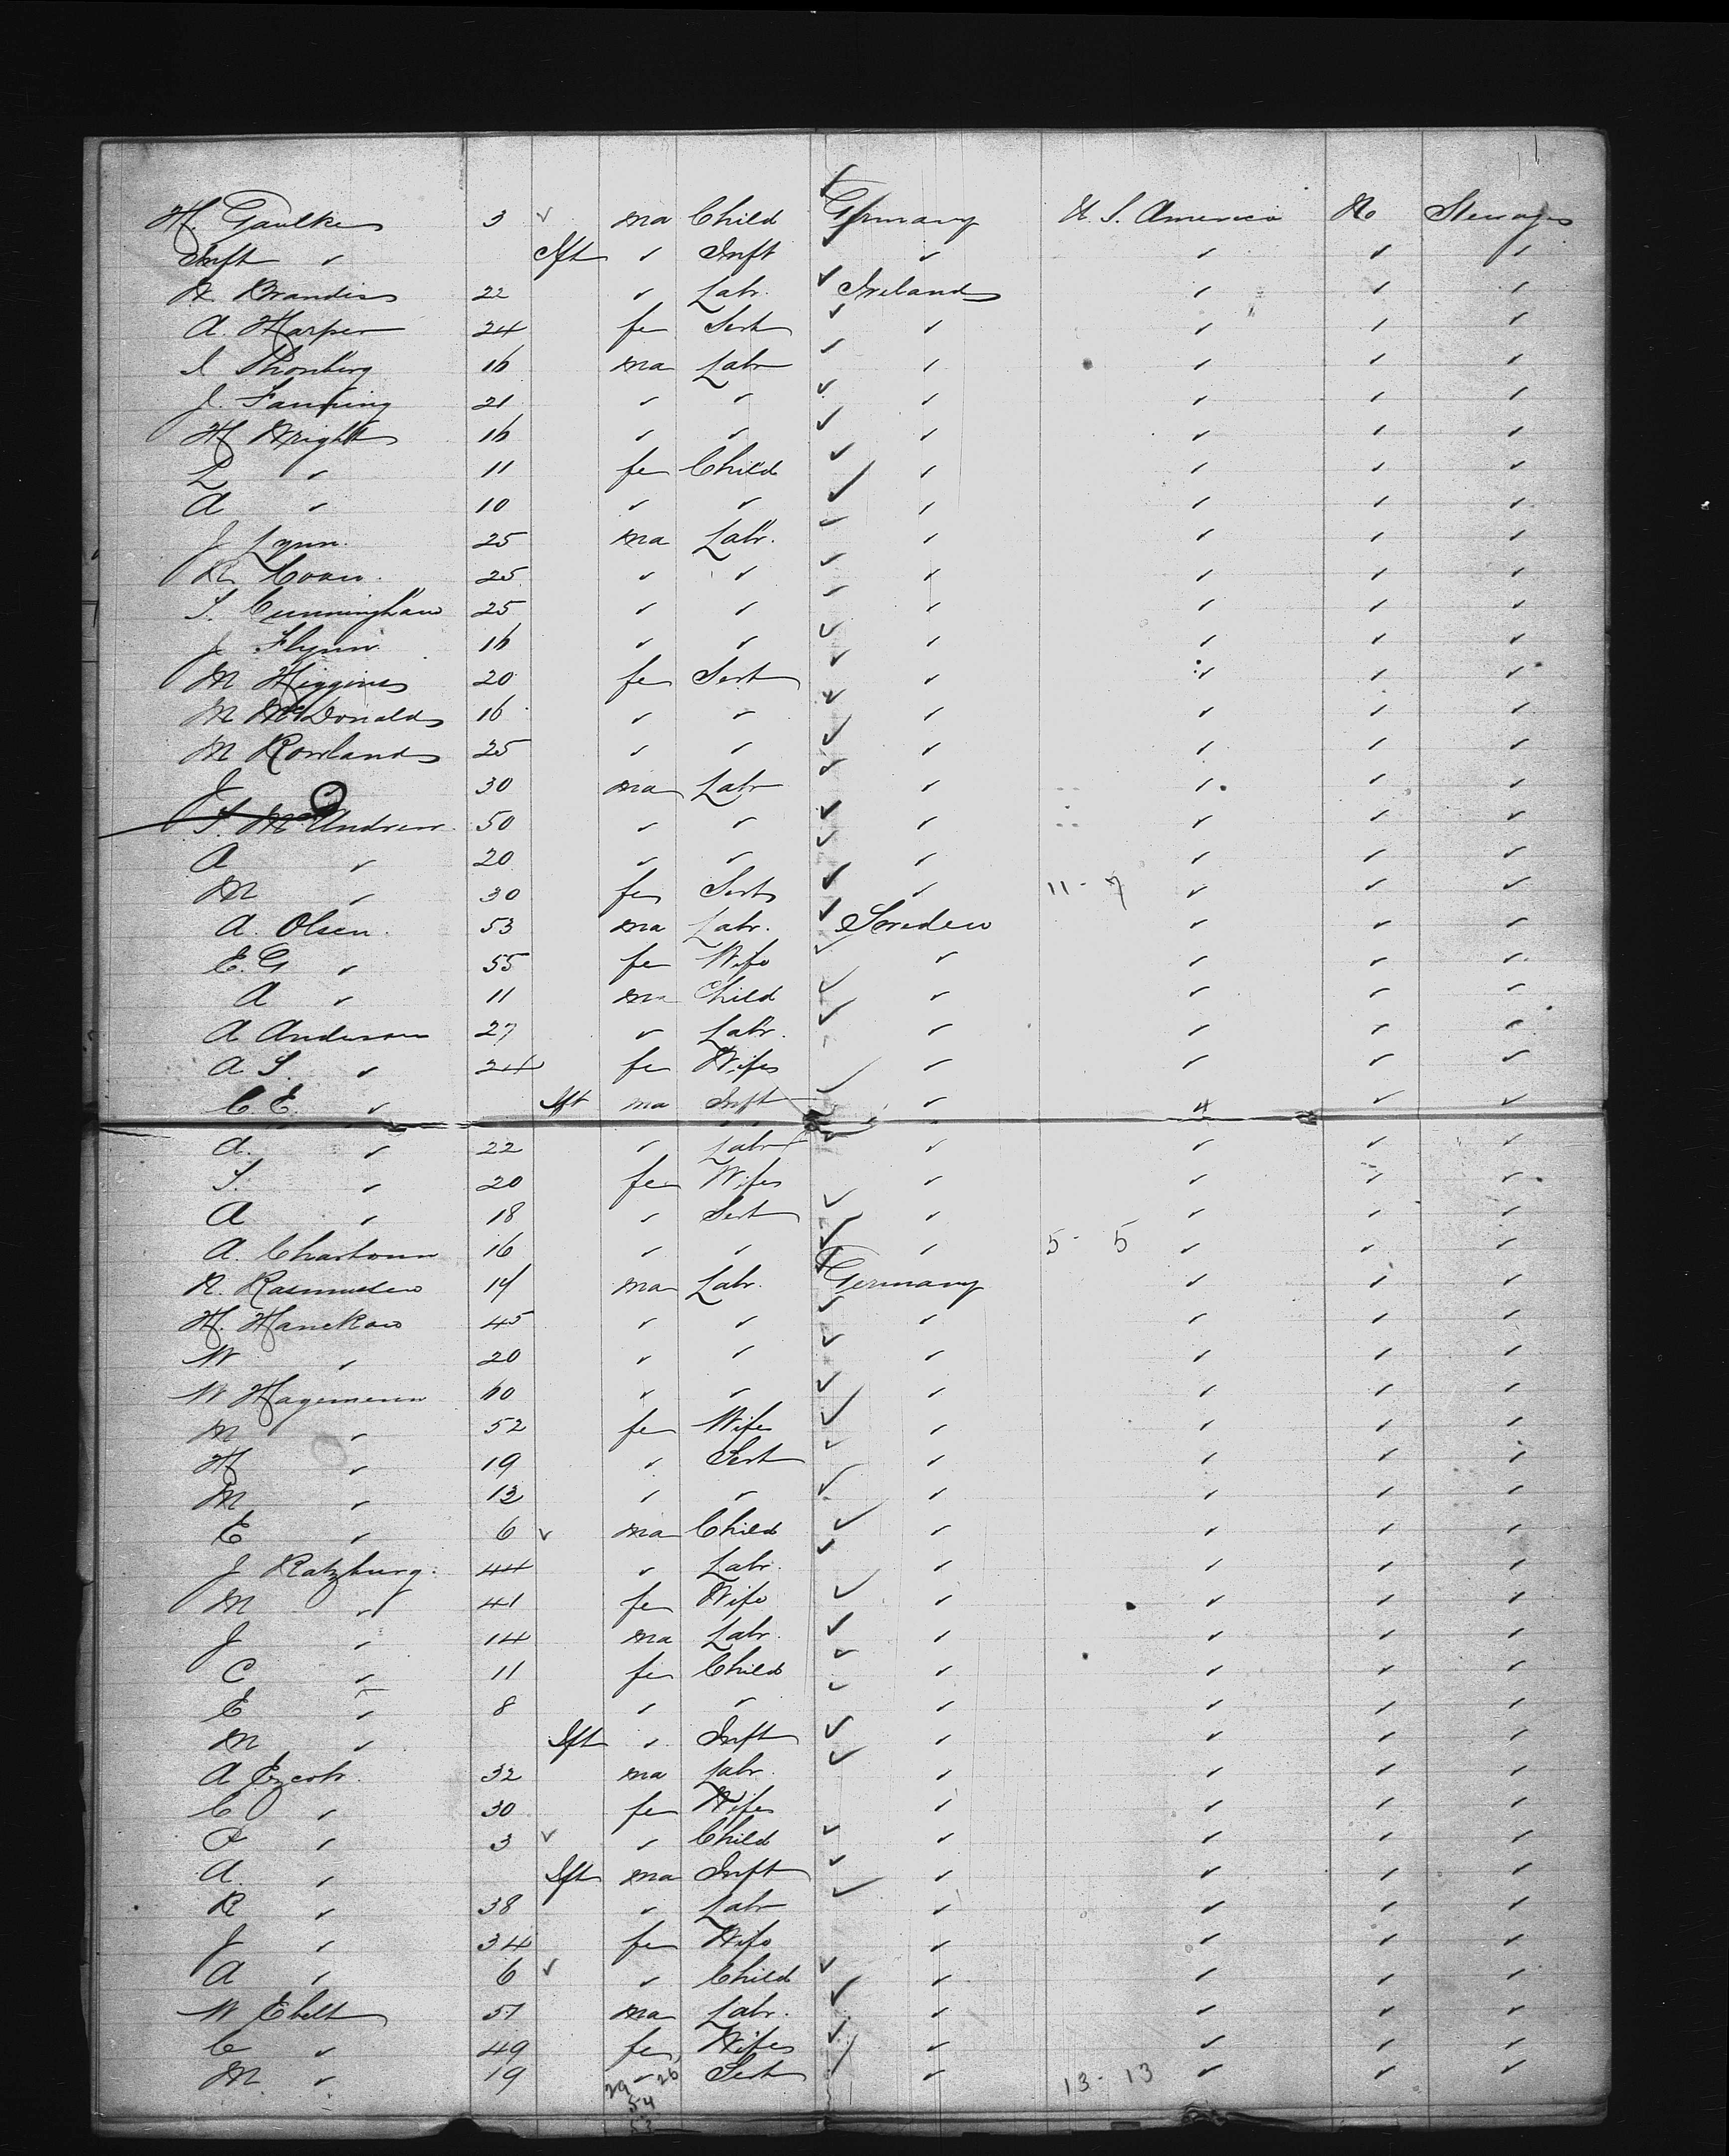 H. Gaulke 3 ✓ ma Child ✓ Germany U. S. America No Steerage
Inft " Ift " Inft ✓ " " " "
Brandis 22 " Labr. ✓ Ireland " " "
A. Harper 24 fe Sert ✓ " " " "
16 ma Labr ✓ " " " "
J. Fanning 21 " " ✓ " " " "
H Wright 16 " " ✓ " " " "
L " 11 fe Child ✓ " " " "
A " 10 " " ✓ " " " "
J Lynn. 25 ma Labr. ✓ " " " "
25 " " ✓ " " " "
S. Cunningham 25 " " ✓ " " " "
J Flynn 16 " " ✓ " " " "
M Higgins 20 fe Sert ✓ " " " "
M McDonald 16 " " ✓ " " " "
M Rowland 25 " " ✓ " " " "
J 30 ma Labr ✓ " " " "
McAndrew 50 " " ✓ " " " "
A " 20 " " ✓ " " " "
M " 30 fe Sert ✓ " 11 - 7 " " "
A. Olsen. 53 ma Labr. ✓ Sweden " " "
E. G " 55 fe Wife ✓ " " " "
A " 11 ma Child ✓ " " " "
A Anderson 27 " Labr. ✓ " " " "
A S. " 24 fe Wife ✓ " " " "
C. E. " Ift ma Inft ✓ " " " "
A. " 22 " Labr ✓ " " " "
S. " 20 fe Wife " " " "
A " 18 " Sert ✓ " " " "
A. 16 " " ✓ " 5 - 5 " " "
Rasmussen 14 ma Labr. ✓ Germany " " "
H. Hanekow 45 " " ✓ " " " "
W " 20 " " ✓ " " " "
W Hagemenn 60 " " ✓ " " " "
M " 52 fe Wife ✓ " " " "
H " 19 " Sert ✓ " " " "
M " 13 " " ✓ " " " "
E " 6 ✓ ma Child ✓ " " " "
J Ratzburg. 44 " Labr. ✓ " " " "
M " 41 fe Wife ✓ " " " "
J " 14 ma Labr. ✓ " " " "
C " 11 fe Child ✓ " " " "
E " 8 " " ✓ " " " "
M " Ift " Inft ✓ " " " "
A 32 ma Labr. ✓ " " " "
C " 30 fe Wife " " " "
" 3 ✓ " Child ✓ " " " "
A. " Ift ma Inft ✓ " " " "
R " 38 " Labr ✓ " " " "
J " 34 fe Wife " " " "
A " 6 ✓ " Child ✓ " " " "
W Ebelt 51 ma Labr. ✓ " " " "
C " 49 fe Wife ✓ " " " "
M. " 19 " Sert ✓ " 13 - 13 " " "
29 26
54
53